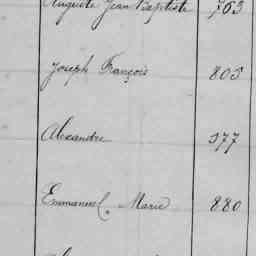 Auguste Jean Baptiste 763
Joseph François 805
Alexandre 377
Emmanuel Marie 880